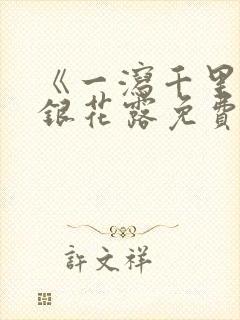 《一瀉千里
銀花露免費
許文祥